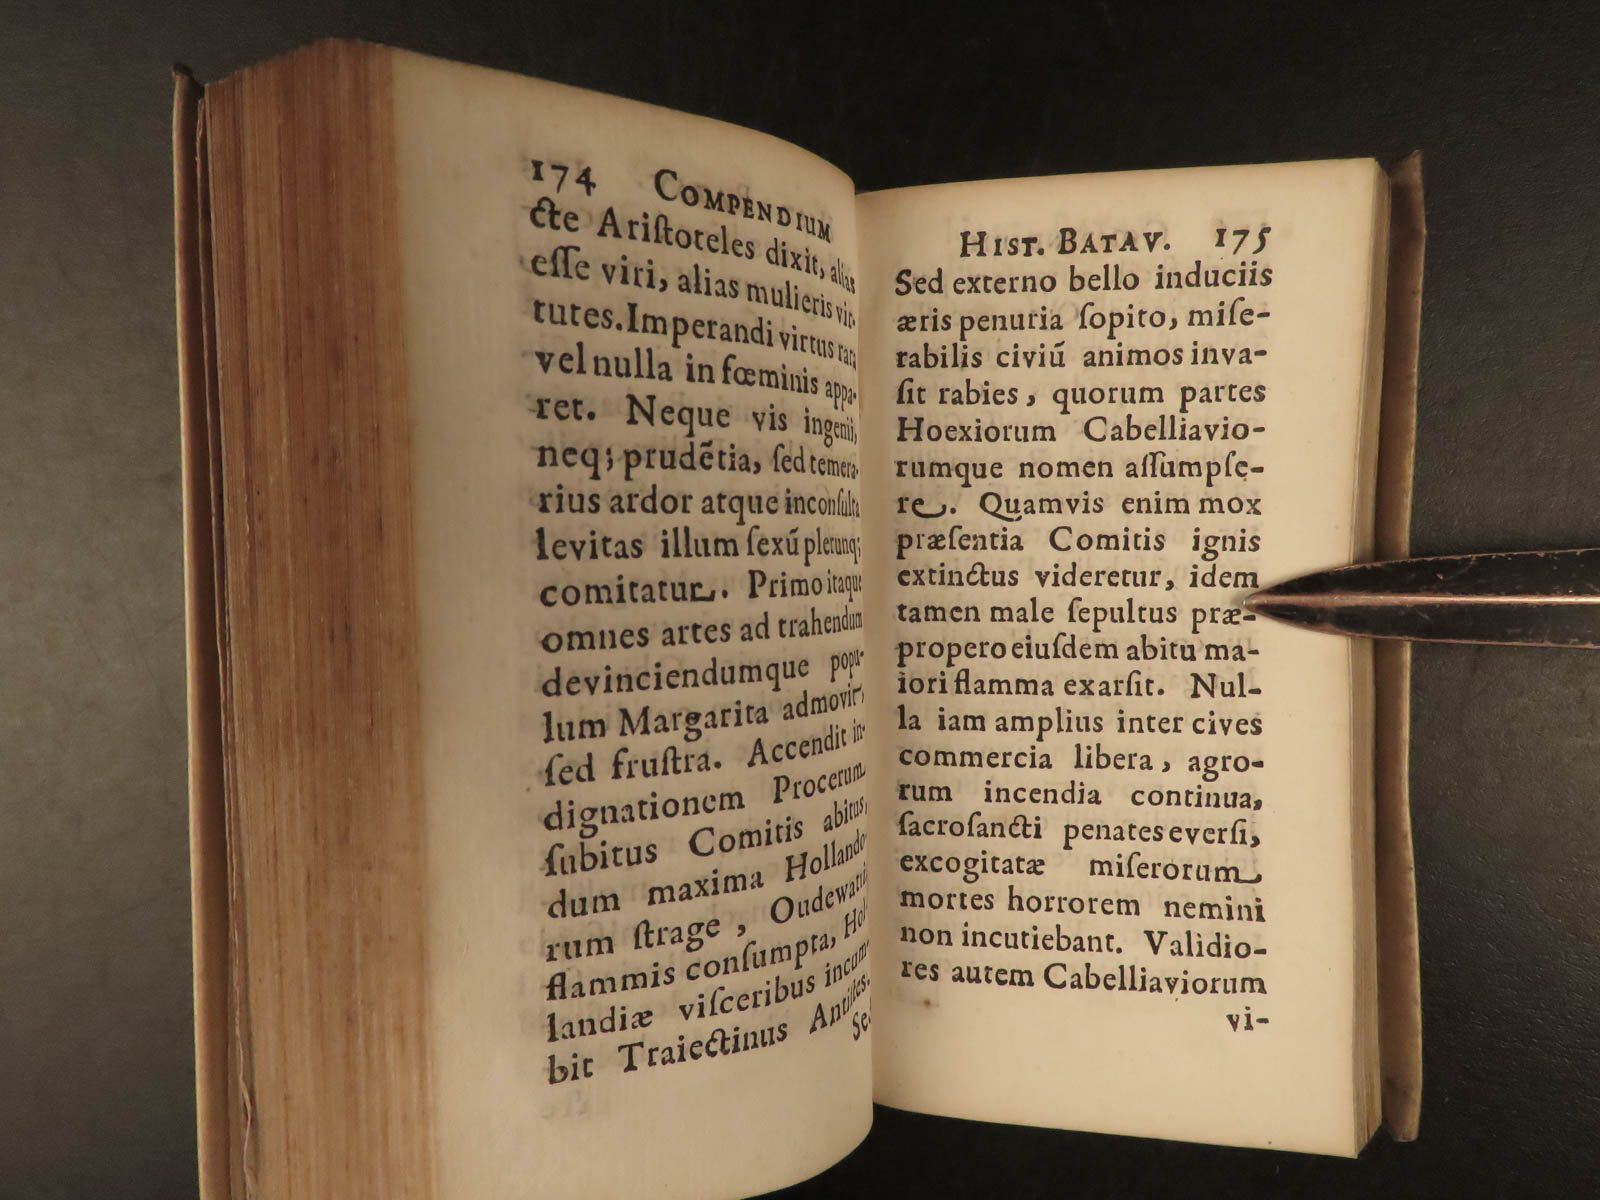 174 COMPENDIUM
cte Ariſtoteles dixit, alias
eſſe viri, alias mulieris vir-
tutes. Imperandi virtus rara
vel nulla in fœminis appa-
ret. Neque vis ingenii,
neq; prudẽtia, ſed temera-
rius ardor atque inconſulta
levitas illum ſexũ plerunq;
comitatur. Primo itaque
omnes artes ad trahendum
devinciendumque popu-
lum Margarita admovit,
ſed fruſtra. Accendit in-
dignationem Procerum
ſubitus Comitis abitus,
dum maxima Hollando-
rum ſtrage, Oudewatria
flammis conſumpta, Hol-
landiæ viſceribus incum-
bit Traiectinus Antiſtes.
Sed
HIST. BATAV. 175
Sed externo bello induciis
æris penuria ſopito, miſe-
rabilis civiũ animos inva-
ſit rabies, quorum partes
Hoexiorum Cabelliavio-
rumque nomen aſſumpſe-
re. Quamvis enim mox
præſentia Comitis ignis
extinctus videretur, idem
tamen male ſepultus præ-
propero eiuſdem abitu ma-
iori flamma exarſit. Nul-
la iam amplius inter cives
commercia libera, agro-
rum incendia continua,
ſacroſancti penates everſi,
excogitatæ miſerorum,
mortes horrorem nemini
non incutiebant. Validio-
res autem Cabelliaviorum
vi-